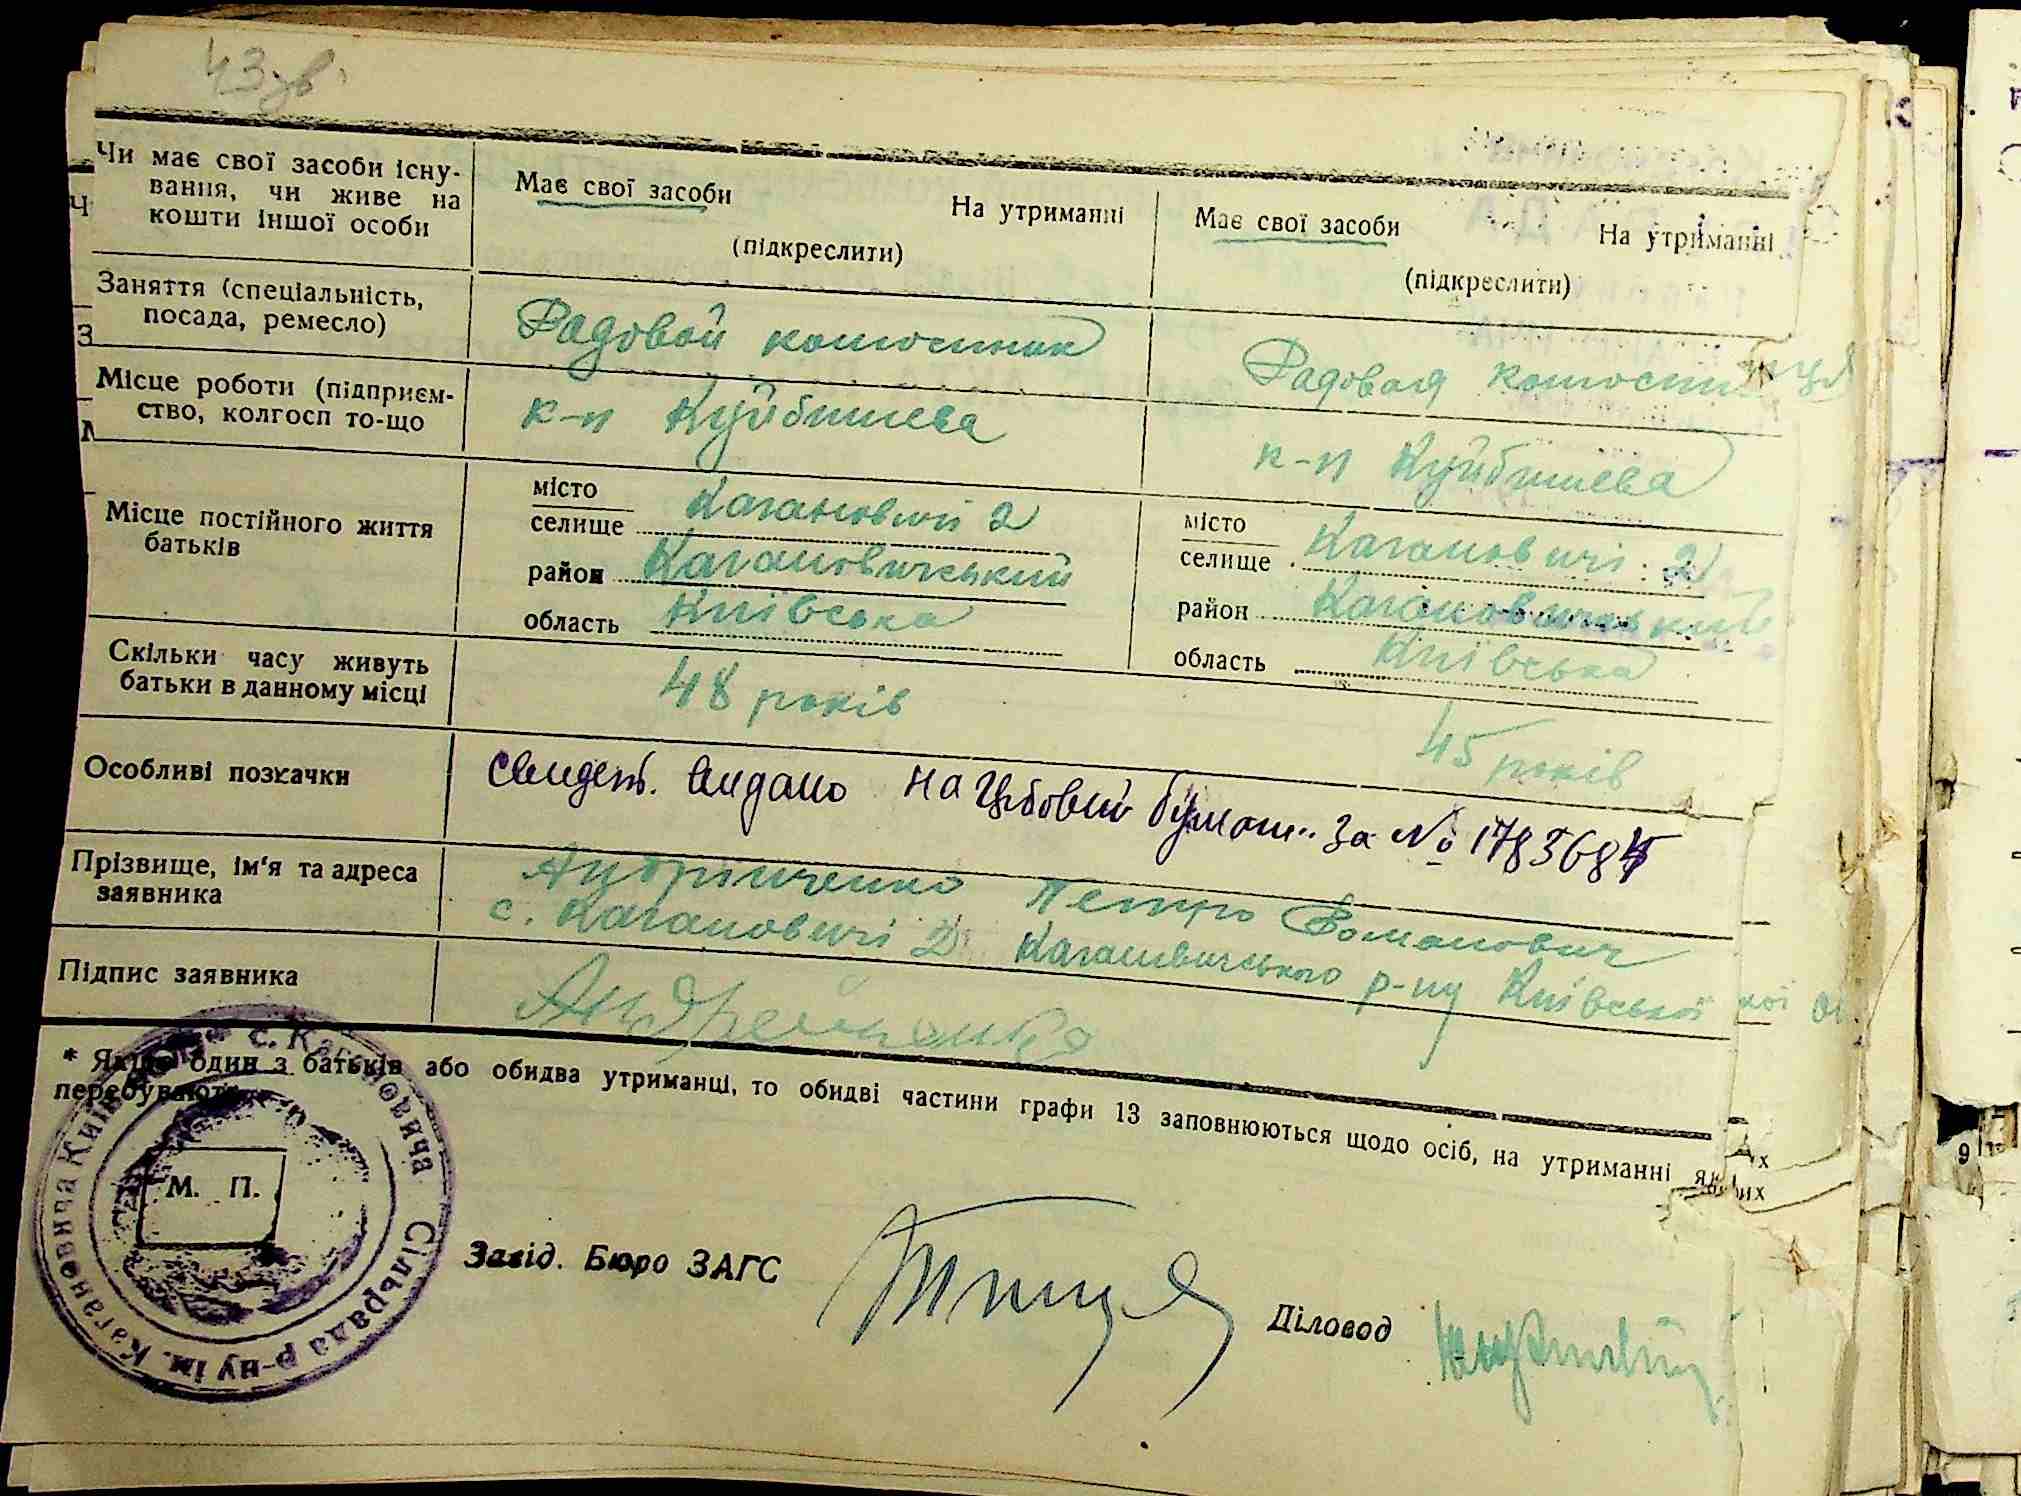 43 зв.
Чи має свої засоби існу-
вання, чи живе на
кошти іншої особи
Має свої засоби На утриманні
(підкреслити)
Має свої засоби На утриманні
(підкреслити)
Заняття (спеціальність,
посада, ремесло)
Радовой
Радовая
Місце роботи (підприєм-
ство, колгосп то-що
к-п Куйбишева
к-п Куйбишева
Місце постійного життя
батьків
місто
селище Кагановичі 2
район Кагановичський
область Київська
місто
селище Кагановичі 2
район Кагановичський
область Київська
Скільки часу живуть
батьки в данному місці
48 років
45 років
Особливі позначки
свидет. видано на гербовій бумаги за № 1783684
Прізвище, ім'я та адреса
заявника
Андрійченко Петро Романович
с. Кагановичі 2 Кагановичського р-ну Київської
Підпис заявника
* Якщо один з батьків або обидва утриманці, то обидві частини графи 13 заповнюються щодо осіб, на утриманні яких
перебувають
с. Кагановича Сільрада р-ну ім. Кагановича Київ
М. П.
Завід. Бюро ЗАГС
Діловод